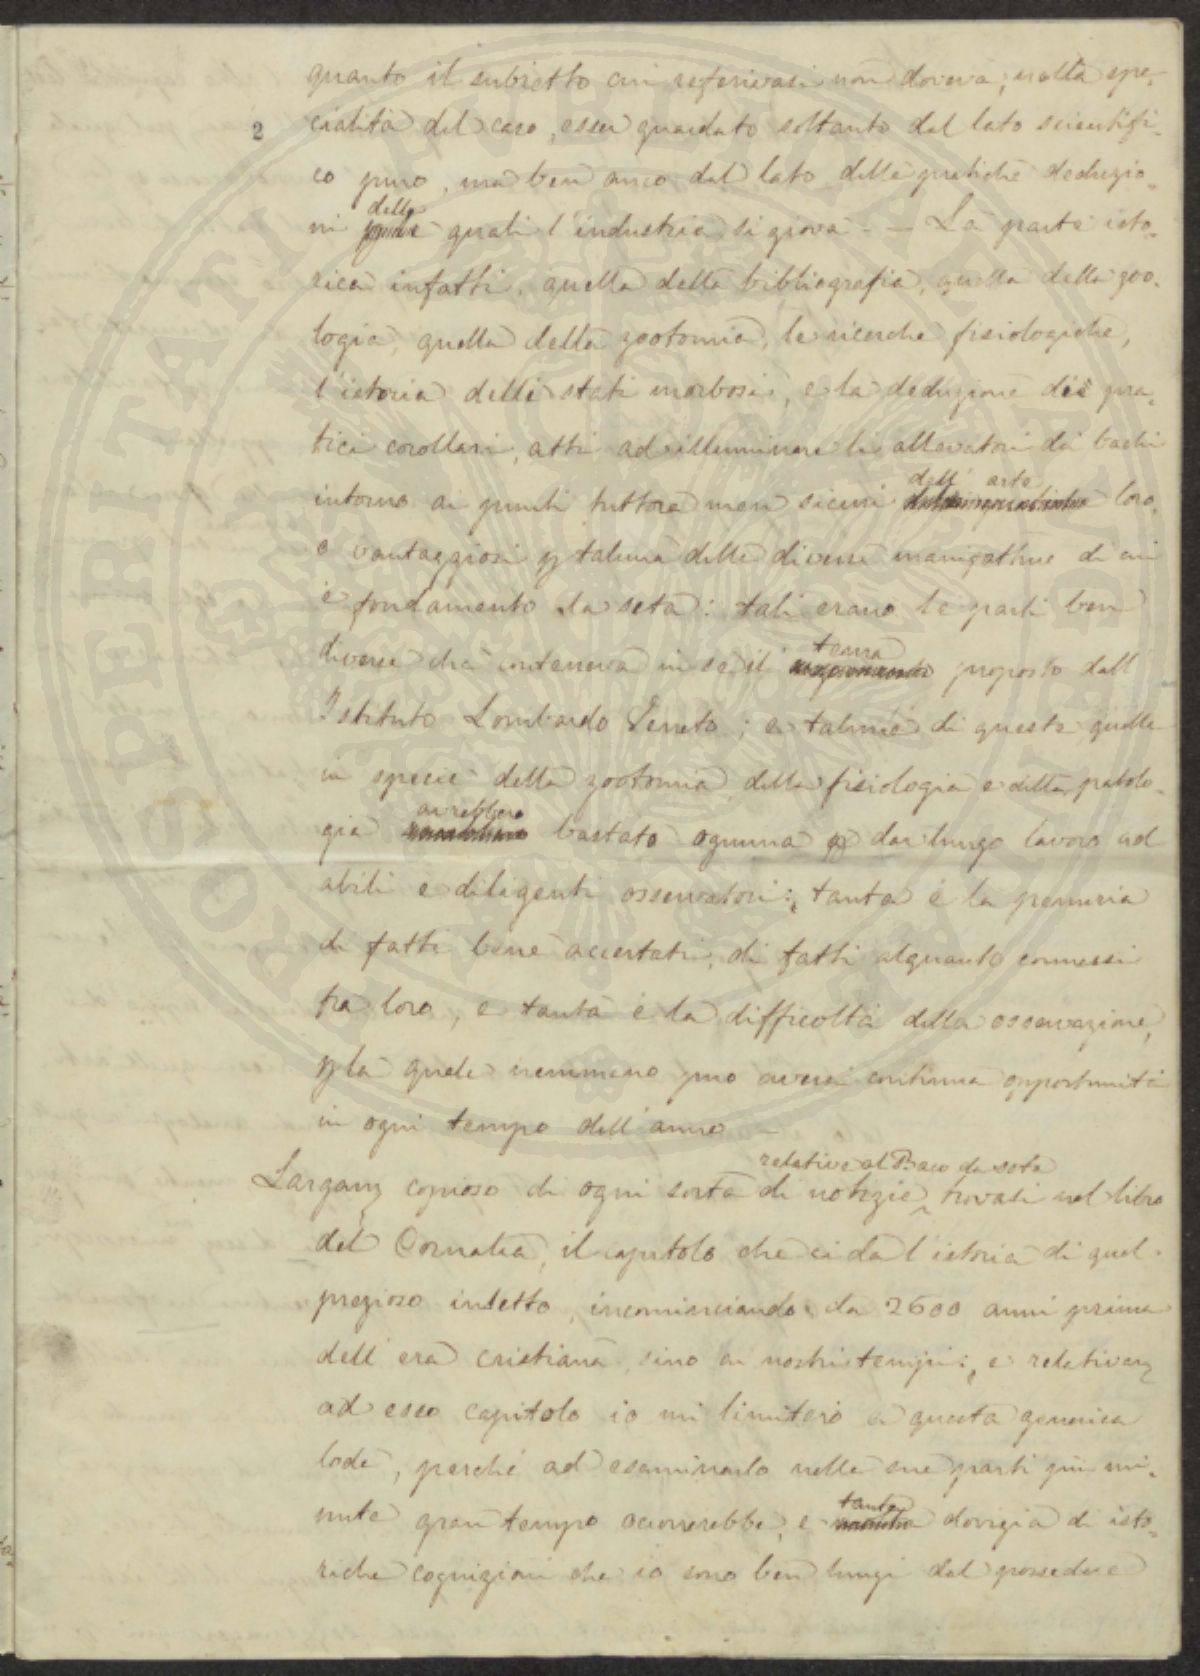 quanto il subietto cui referivasi non doveva, nella spe-
2 cialità del caso, esser guardato soltanto dal lato scientifi-
co puro, ma ben anco dal lato delle pratiche deduzio-
delle
ni quali l'industria si giova - — La parte isto-
rica infatti, quella della bibliografia, quella della zoo-
logia, quella della zootomia, le ricerche fisiologiche,
l'istoria delli stati morbosi, e la deduzione dei pra-
tici corollari, atti ad illuminare li allevatori di bachi
dell' arte
intorno ai punti tuttora men sicuri loro,
e vantaggiosi p taluna delle diverse manifatture di cui
è fondamento la seta: tali erano le parti ben
tema
diverse che conteneva in se il proposto dall'
Istituto Lombardo Veneto; e talune di queste quelle
in specie della zootomia, della fisiologia e della patolo-
avrebbero
gia bastato ognuna p dar lungo lavoro ad
abili e diligenti osservatori; tanta è la penuria
di fatti bene accertati, di fatti alquanto connessi
tra loro, e tanta è la difficoltà della osservazione,
p la quale nemmeno può aversi continua opportunità
in ogni tempo dell'anno —
relative al Baco da seta
copioso di ogni sorta di notizie trovasi nel libro
del Cornalia, il capitolo che ci dà l'istoria di quel
prezioso insetto, incominciando da 2600 anni prima
dell'era cristiana, sino ai nostri tempi; e
ad esso capitolo io mi limiterò a questa generica
lode, perché ad esaminarlo nelle sue parti più mi-
tanta
nute gran tempo occorrerebbe, e dovizia di isto-
riche cognizioni che io sono ben lungi dal possedere